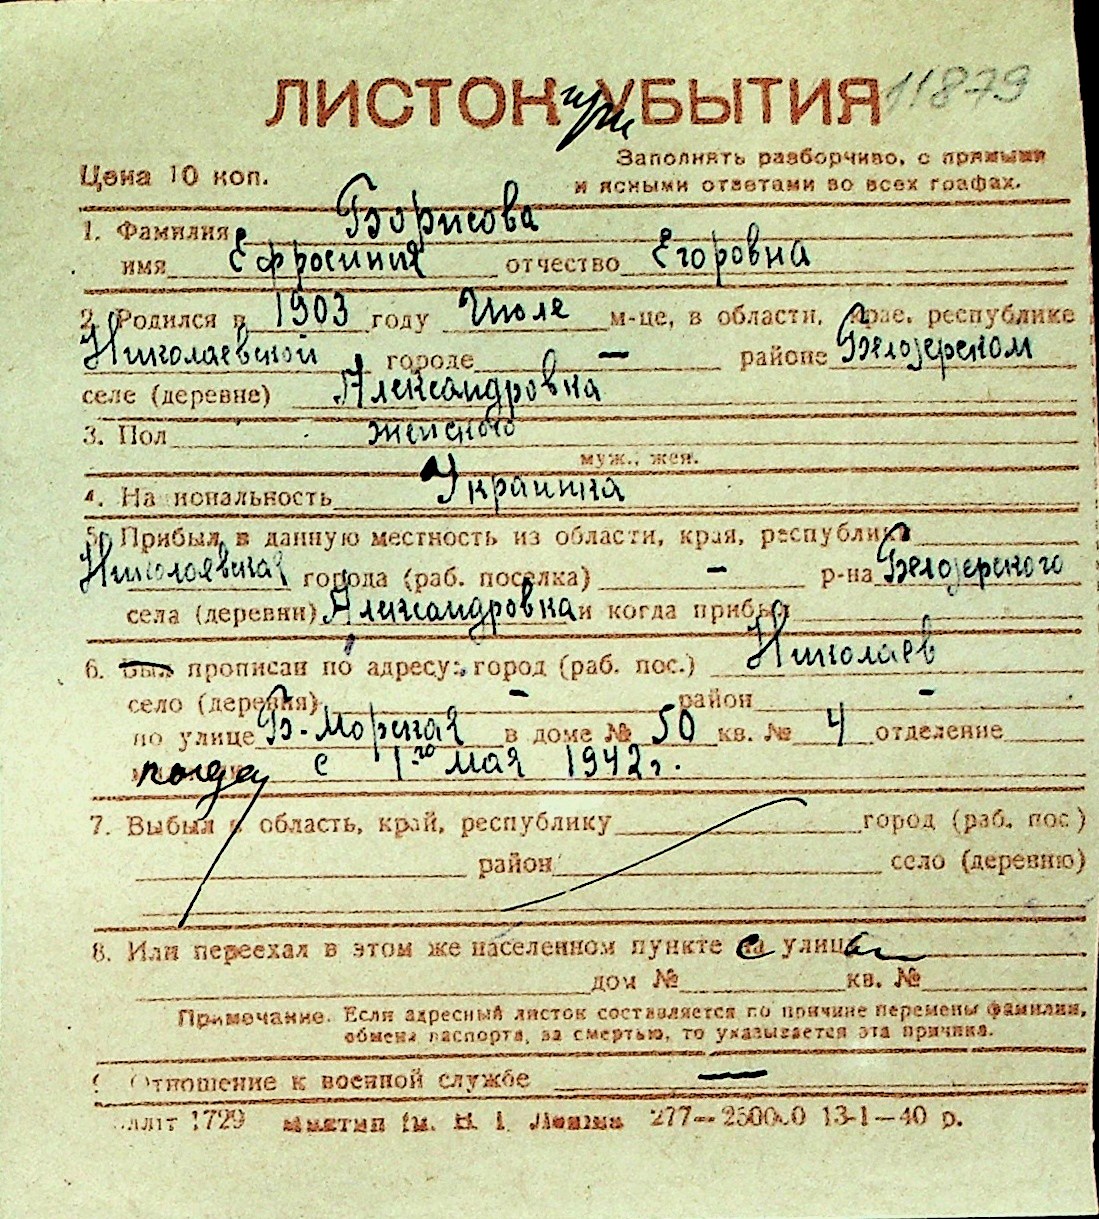 ЛИСТОК при УБЫТИЯ 11879
Цена 10 коп. Заполнять разборчиво, с прямыми
и ясными ответами во всех графах.
1. Фамилия Борисова
имя Ефросиния отчество Егоровна
2. Родился в 1903 году Июле м-це, в области, крае, республике
Николаевской городе — районе Белозерском
селе (деревне) Александровка
3. Пол женского
муж., жен.
4. Национальность Украинка
5. Прибыл в данную местность из области, края, республики
Николаевская города (раб. поселка) — р-на Белозерского
села (деревни) Александровка и когда прибыл
6. Был прописан по адресу: город (раб. пос.) Николаев
село (деревня) — район —
по улице Б-Морская в доме № 50 кв. № 4 отделение
когда с 1го мая 1942 г.
7. Выбыл в область, край, республику город (раб. пос.)
район село (деревню)
8. Или переехал в этом же населенном пункте с улицы
дом № кв. №
Примечание. Если адресный листок составляется по причине перемены фамилии,
обмена паспорта, за смертью, то указывается эта причина.
9 Отношение к военной службе —
лліт 1729 им. В. І. Леніна 13-1—40 р.